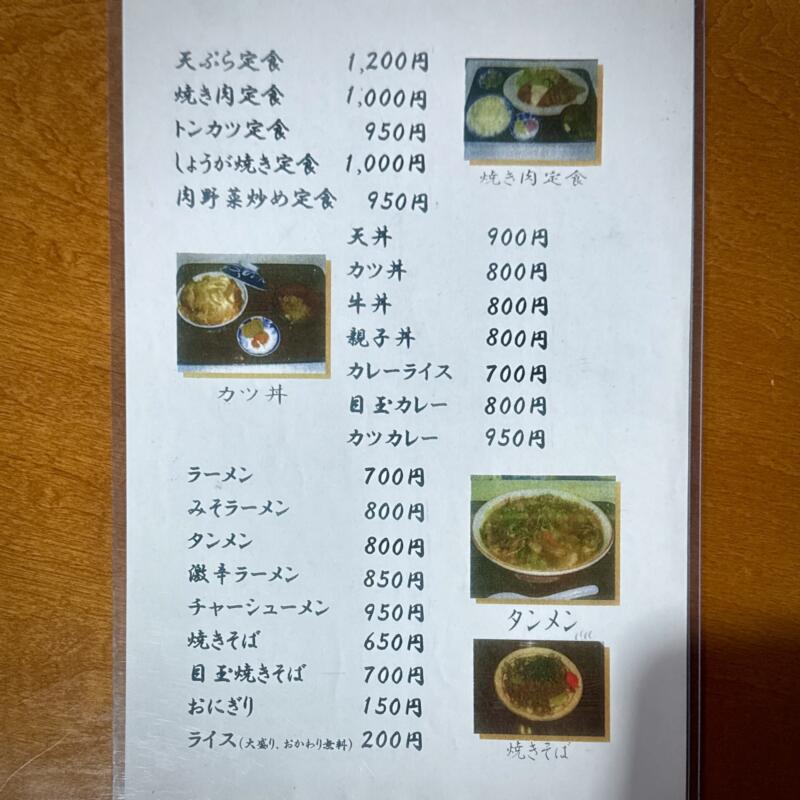 天ぷら定食 1,200円
焼き肉定食 1,000円
トンカツ定食 950円
しょうが焼き定食 1,000円
肉野菜炒め定食 950円
焼き肉定食
天丼 900円
カツ丼 800円
牛丼 800円
親子丼 800円
カレーライス 700円
目玉カレー 800円
カツカレー 950円
カツ丼
ラーメン 700円
みそラーメン 800円
タンメン 800円
激辛ラーメン 850円
チャーシューメン 950円
焼きそば 650円
目玉焼きそば 700円
おにぎり 150円
ライス(大盛り、おかわり無料) 200円
タンメン
焼きそば